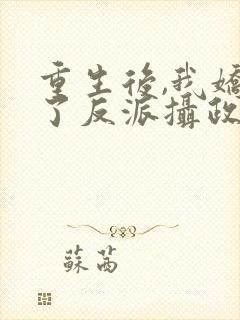 重生後,我嬌
了反派攝政
蘇茜